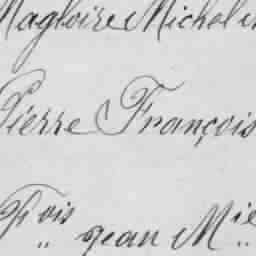 Magloire Michel
Pierre François
Fois jean Mie